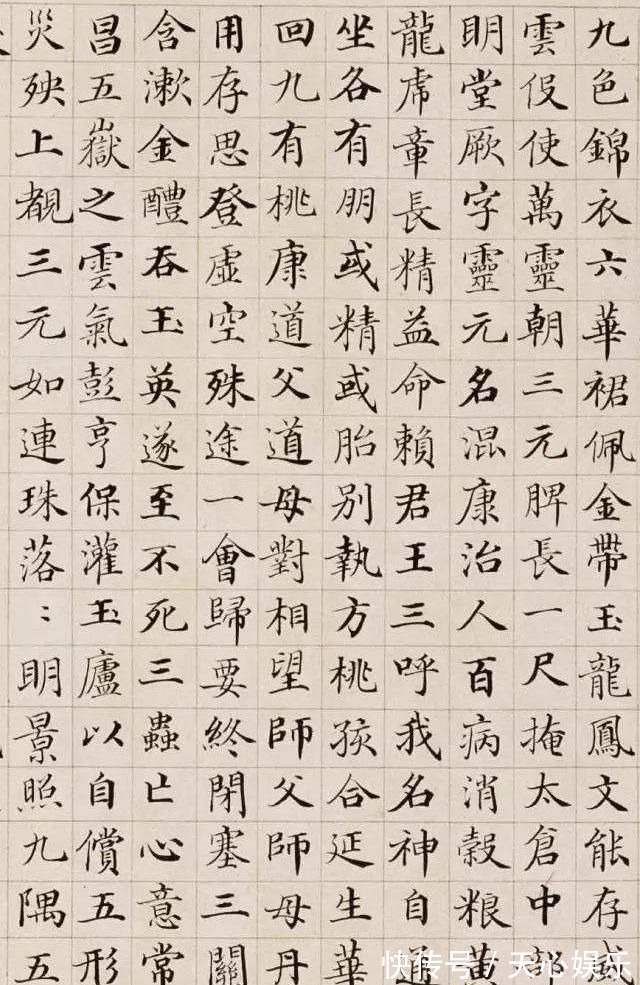 九色錦衣六華裙佩金帶玉龍鳳文能存威
雲伇使萬靈朝三元脾長一尺掩太倉中部
明堂厥字靈元名混康治人百病消穀粮黃
龍虎章長精益命賴君王三呼我名神自通
坐各有朋或精或胎別執方桃孩合延生華
回九有桃康道父道母對相望師父師母丹
用存思登虛空殊途一會歸要終閉塞三關
含漱金醴吞玉英遂至不死三蟲亡心意常
昌五嶽之雲氣彭亨保灌玉廬以自償五形
災殃上覩三元如連珠落:明景照九隅五
快传号 / 天心娱乐